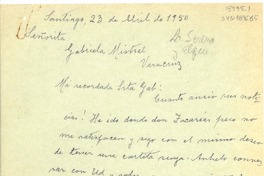 Santiago, 23 de Abril de 1950
Señorita
Gabriela Mistral
Veracruz
Mi recordada Srta Gab:
Cuanto ansío sus not
cias! He ido donde don Isacarías pero no
me satisfacen y sigo con el mismo deseo
de tener una cartita suya. Anhelo conver
sar con Ud